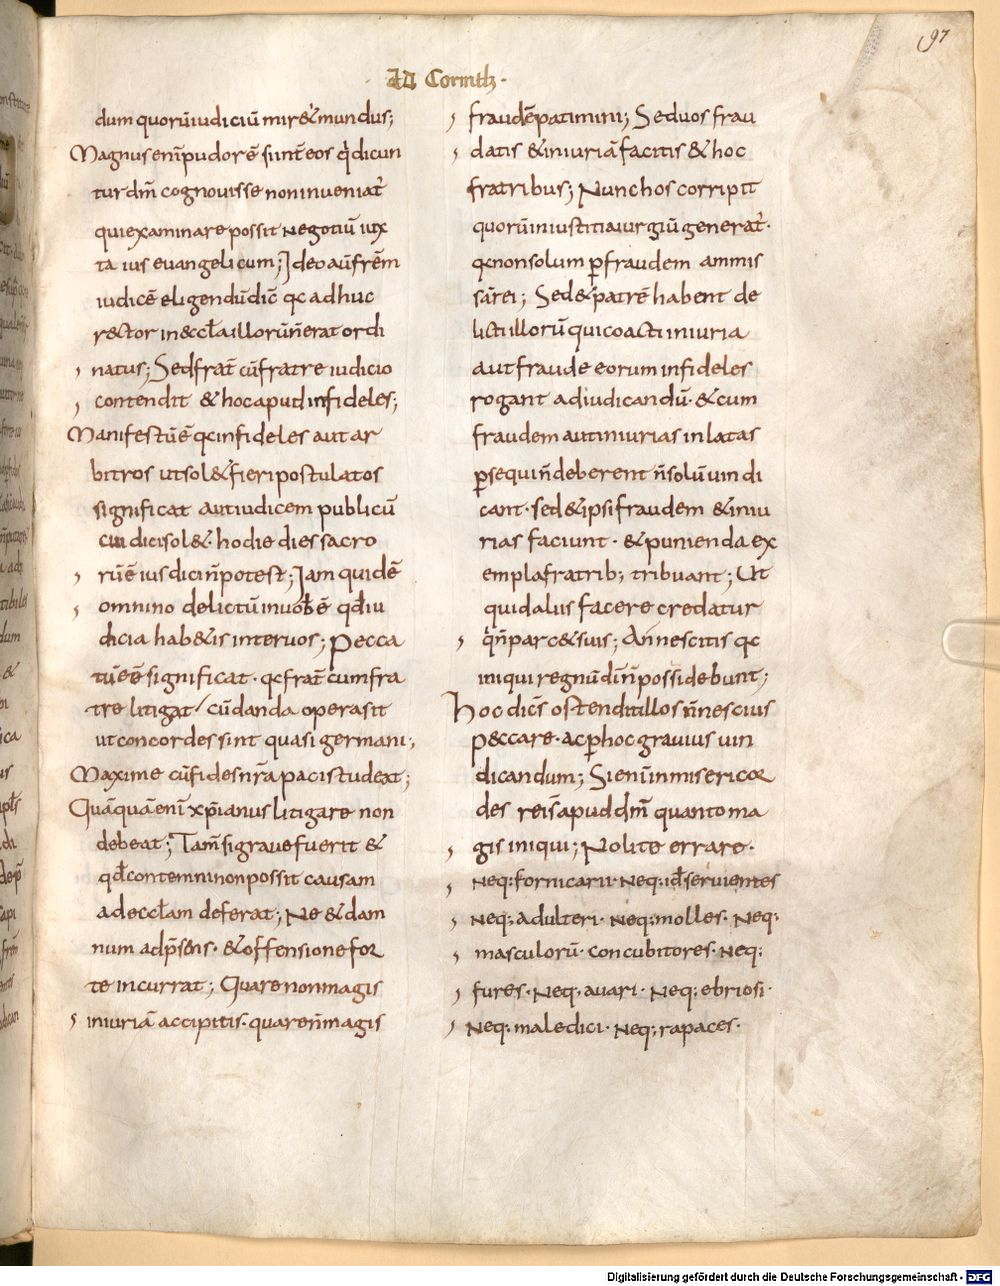 97
AD Corinth·
dum quorũ iudiciũ mir&ur mundus;
Magnus enĩ pudor ẽ si inť eos q̇ dicun
tur dm̃ cognouisse non inueniať
qui examinare possit negotiũ iux
ta ius euangelicum; Ideo aũ frẽm
iudicẽ eligendũ dic̃ qc adhuc
rector in eccła illorũ ñ erat ordi
natus; Sed frať cũ fratre iudicio
contendit & hoc aput infideles;
Manifestũ ẽ qc infideles aut ar
bitros ut sol& fieri postulatos
significat aut iudicem publicũ
cui dici sol& · hodie dies sacro
rũ ẽ ius dici ñ potest; Iam quidẽ
omnino delictũ in uob̃ ẽ qd̃ iu
dicia hab&is inter uos; Pecca
tũ eẽ significat · qc frať cum fra
tre litigat / cũ danda opera sit
ut concordes sint quasi germani;
Maxime cũ fides nr̃a paci studeat;
Quãquã enĩ xp̃ianus litigare non
debeat; Tam̃ si graue fuerit &
qd̃ contemni non possit causam
ad eccłam deferat; Ne & dam
num ad p̃sens · & offensione for
te incurrat; Quare non magis
iniuriã accipitis · quare ñ magis
fraudẽ patimini; Sed uos frau
datis & iniuriã facitis & hoc
fratribus; Nunc hos corripit
quorũ iniustitia iurgiũ generať·
qc non solum ꝑ fraudem ammis
sãr rei; Sed & patrẽ habent de
licti illorũ qui coacti iniuria
aut fraude eorum infideles
rogant ad iudicandũ · & cum
fraudem aut iniurias inlatas
ꝑsequi ñ deberent ñ solũ uindi
cant · sed & ipsi fraudem & iniu
rias faciunt · & punienda ex
empla fratrib; tribuant; Ut
quid aliis facere credatur
q̇ ñ parc& suis; An nescitis qc
iniqui regnũ dĩ ñ possidebunt;
Hoc dic̃s ostendit illos ñ nescius
peccare · ac ꝑ hoc grauius uin
dicandum; Si enĩ inmisericor
des rei s̃ apud dm̃ quanto ma
gis iniqui; Nolite errare·
neq; fornicarii · neq; id̃ seruientes
neq; adulteri · neq; molles · neq;
masculorũ · concubitores · neq;
fures · neq; auari · neq; ebriosi·
neq; maledici · neq; rapaces·
Digitalisierung gefördert durch die Deutsche Forschungsgemeinschaft - DFG